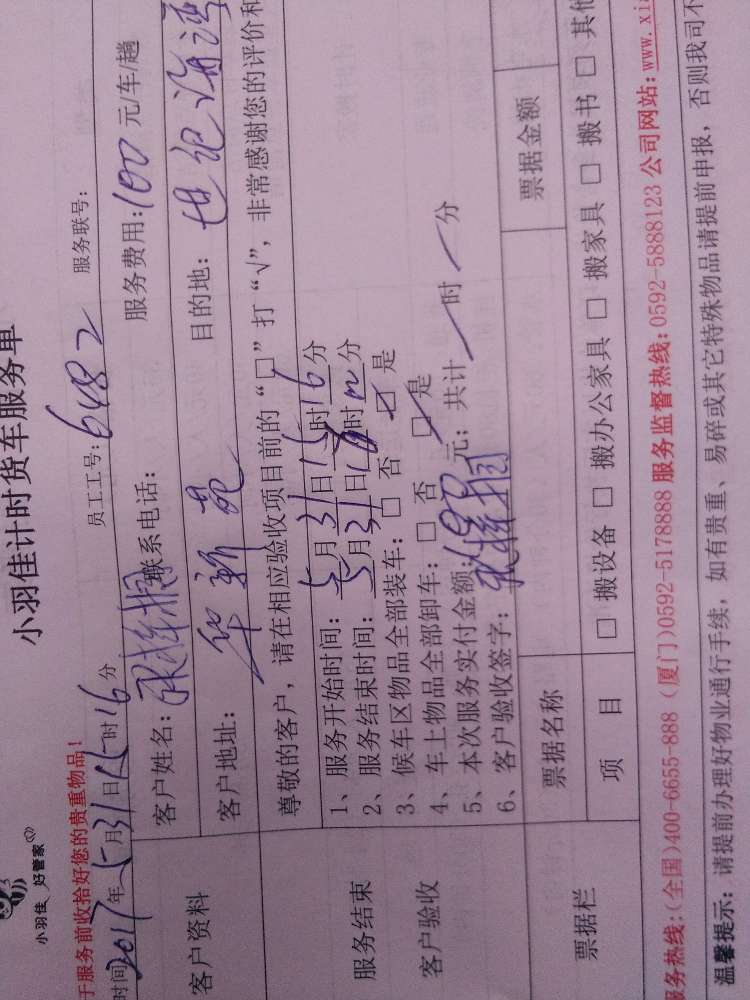 小羽佳 好管家
小羽佳计时货车服务单
于服务前收拾好您的贵重物品！
员工工号：6482 服务联号：
时间2017年5月31日15时16分
客户资料
客户姓名： 联系电话： 服务费用：100元/车/趟
客户地址：华新苑 目的地：世纪海湾
服务结束
客户验收
尊敬的客户，请在相应验收项目前的“□”打“√”，非常感谢您的评价和
1、服务开始时间：5月31日15时16分
2、服务结束时间：5月31日 时 分
3、候车区物品全部装车：□ 否 ☑ 是
4、车上物品全部卸车：□ 否 ☑ 是
5、本次服务实付金额： 元；共计 时 分
6、客户验收签字：
票据栏
票据名称 票据金额
项 目 □ 搬设备 □ 搬办公家具 □ 搬家具 □ 搬书 □ 其他
服务热线：(全国)400-6655-888 (厦门)0592-5178888 服务监督热线：0592-5888123 公司网站：www.xia
温馨提示：请提前办理好物业通行手续，如有贵重、易碎或其它特殊物品请提前申报，否则我司不